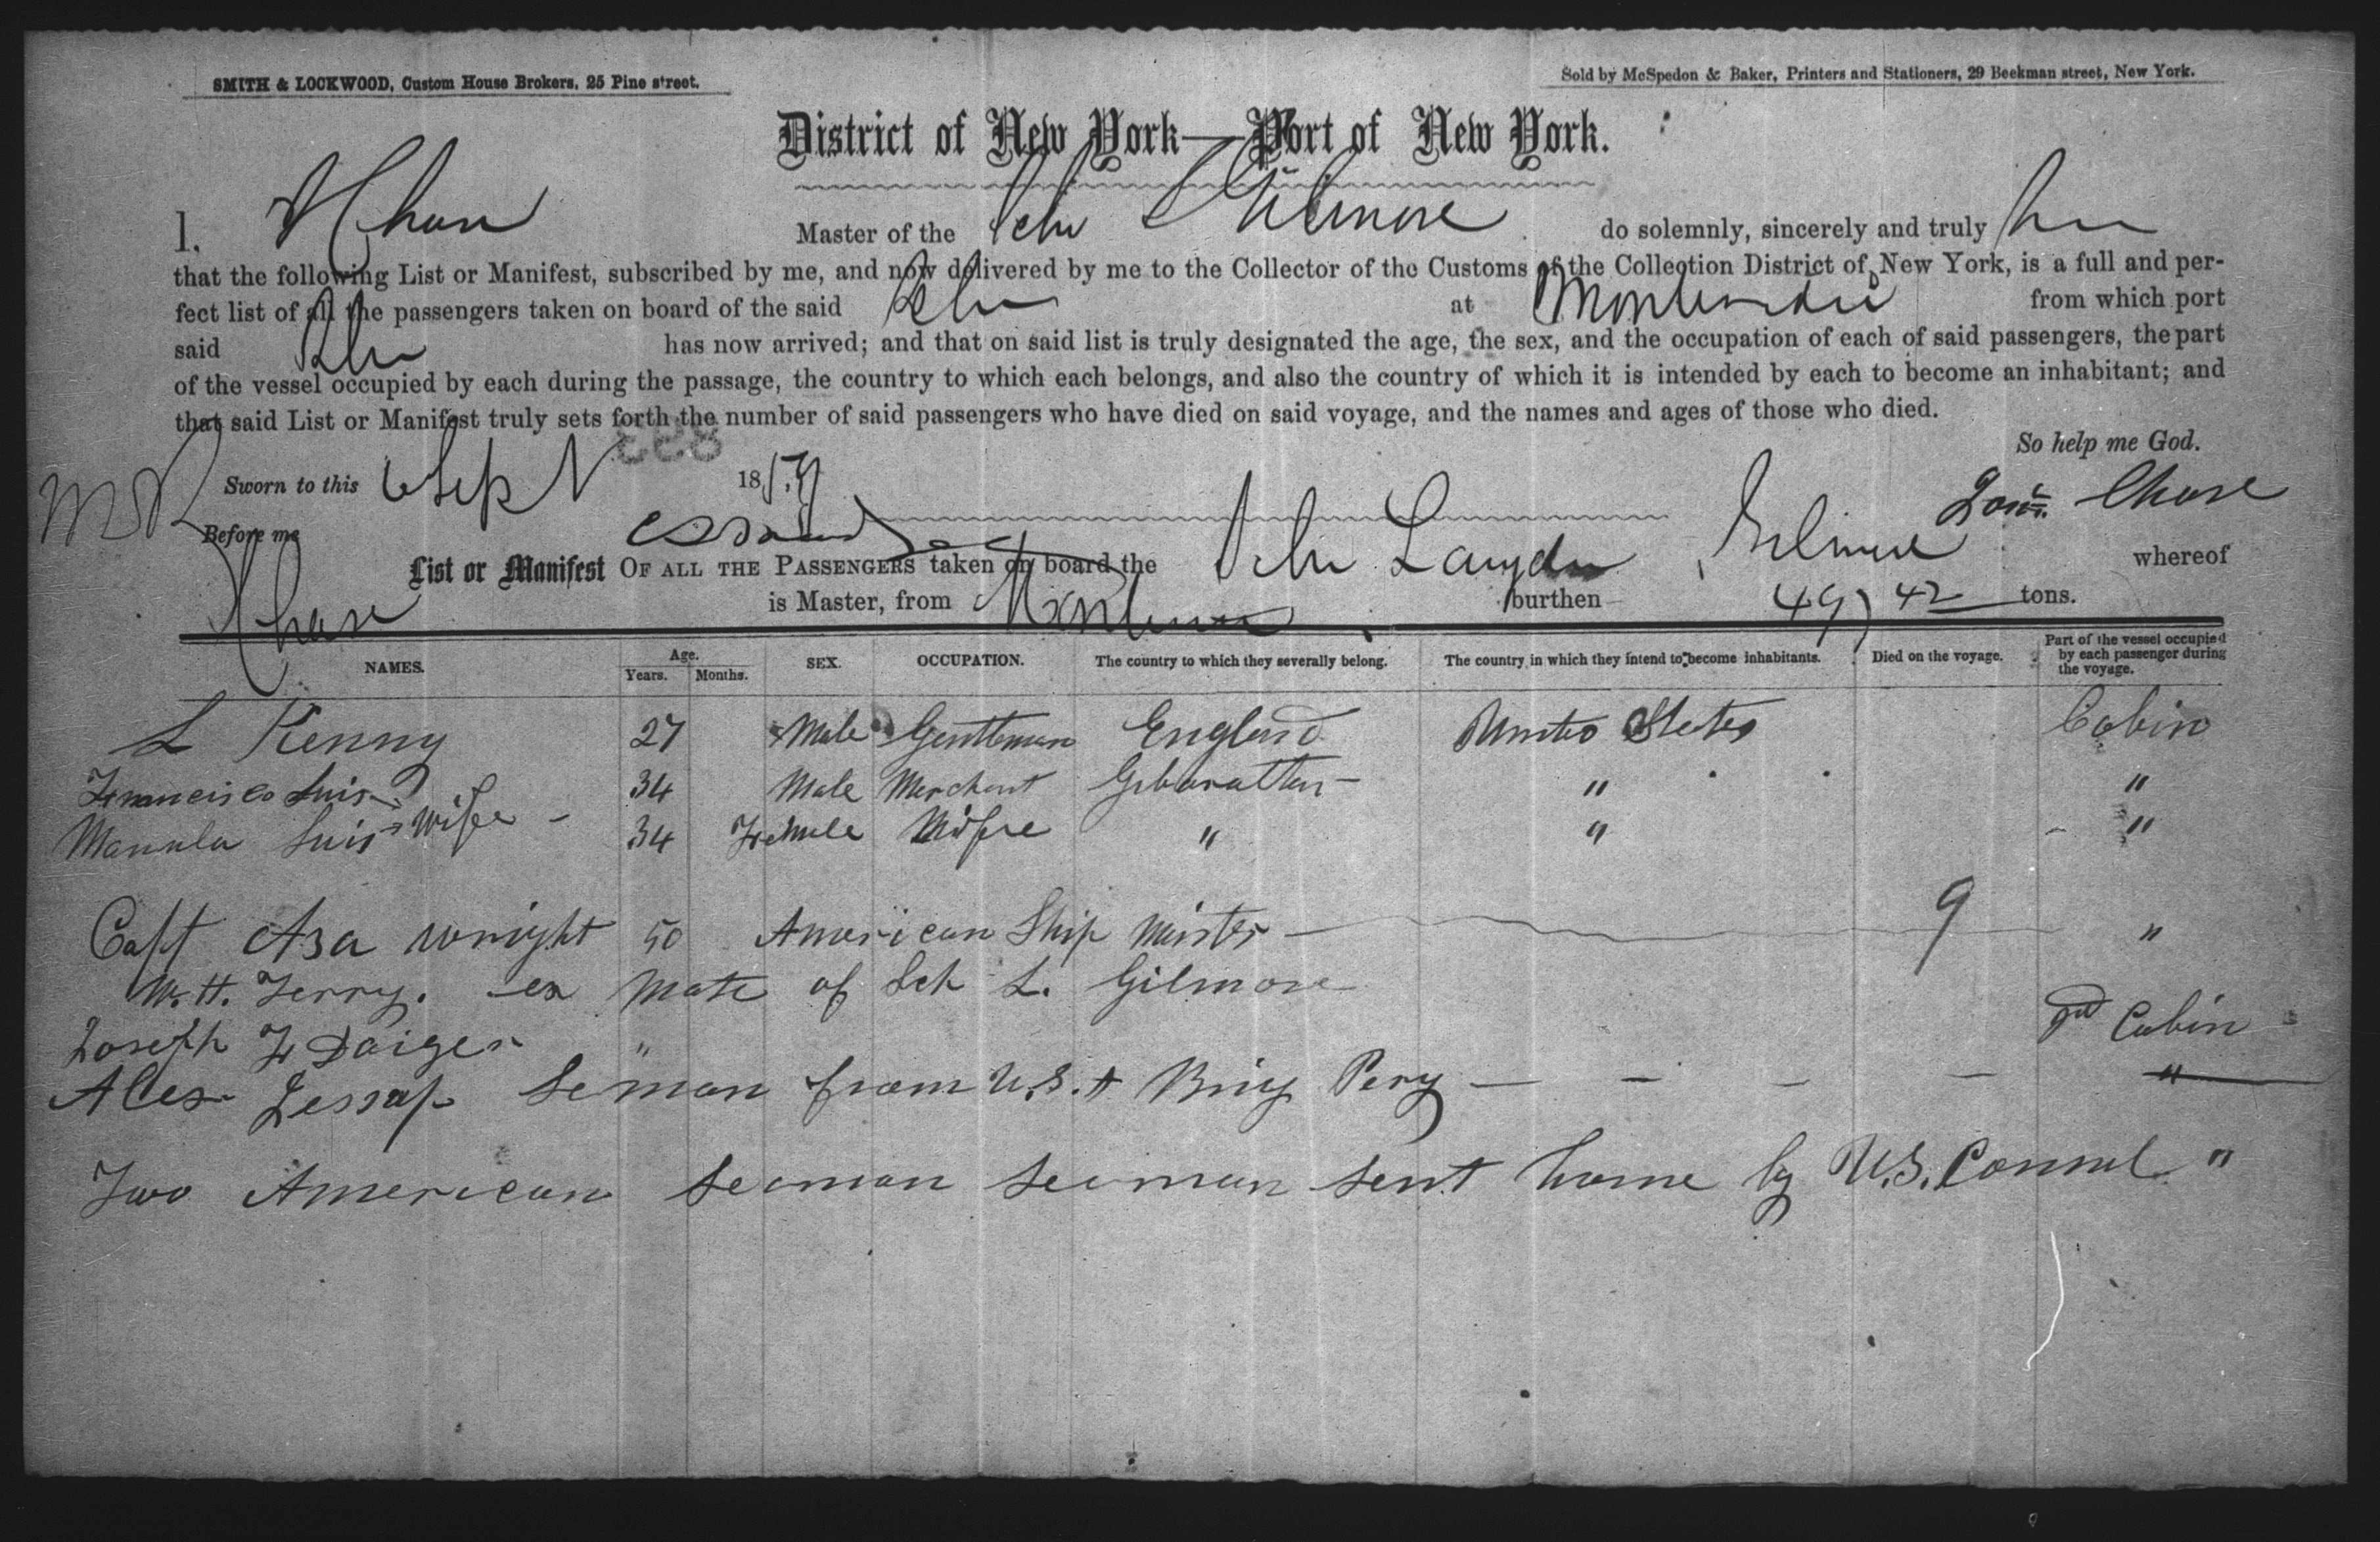 SMITH & LOCKWOOD, Custom House Brokers, 25 Pine street.
Sold by McSpedon & Baker, Printers and Stationers, 29 Beekman street, New York.
District of New York—Port of New York.
I, Chase Master of the Schr L Gilmore do solemnly, sincerely and truly
that the following List or Manifest, subscribed by me, and now delivered by me to the Collector of the Customs of the Collection District of New York, is a full and per-
fect list of all the passengers taken on board of the said Schr at Montevideo from which port
said Schr has now arrived; and that on said list is truly designated the age, the sex, and the occupation of each of said passengers, the part
of the vessel occupied by each during the passage, the country to which each belongs, and also the country of which it is intended by each to become an inhabitant; and
that said List or Manifest truly sets forth the number of said passengers who have died on said voyage, and the names and ages of those who died.
So help me God.
893
Sworn to this 6 Sept 1859
Chase
Before me
List or Manifest OF ALL THE PASSENGERS taken on board the Schr Langdon Gilmore whereof
Chase is Master, from Montevideo burthen 497 42 tons.
NAMES. Age. Years. Months. SEX. OCCUPATION. The country to which they severally belong. The country in which they intend to become inhabitants. Died on the voyage. Part of the vessel occupied by each passenger during the voyage.
L Kenny 27 Male Gentleman England United States Cabin
Francisco Luis 34 Male Merchant Gibaraltar — " "
Manula Luis Wife - 34 Female Wife " " "
Capt Asa Wright 50 American Ship Master — 9 "
W. H. Ferry. ex Mate of Sch L. Gilmore
Joseph F Daiger " Cabin
Alex Jessap Seman from U.S. Brig Pery — — — — "
Two American Seaman Seaman sent home by U.S. Consul "